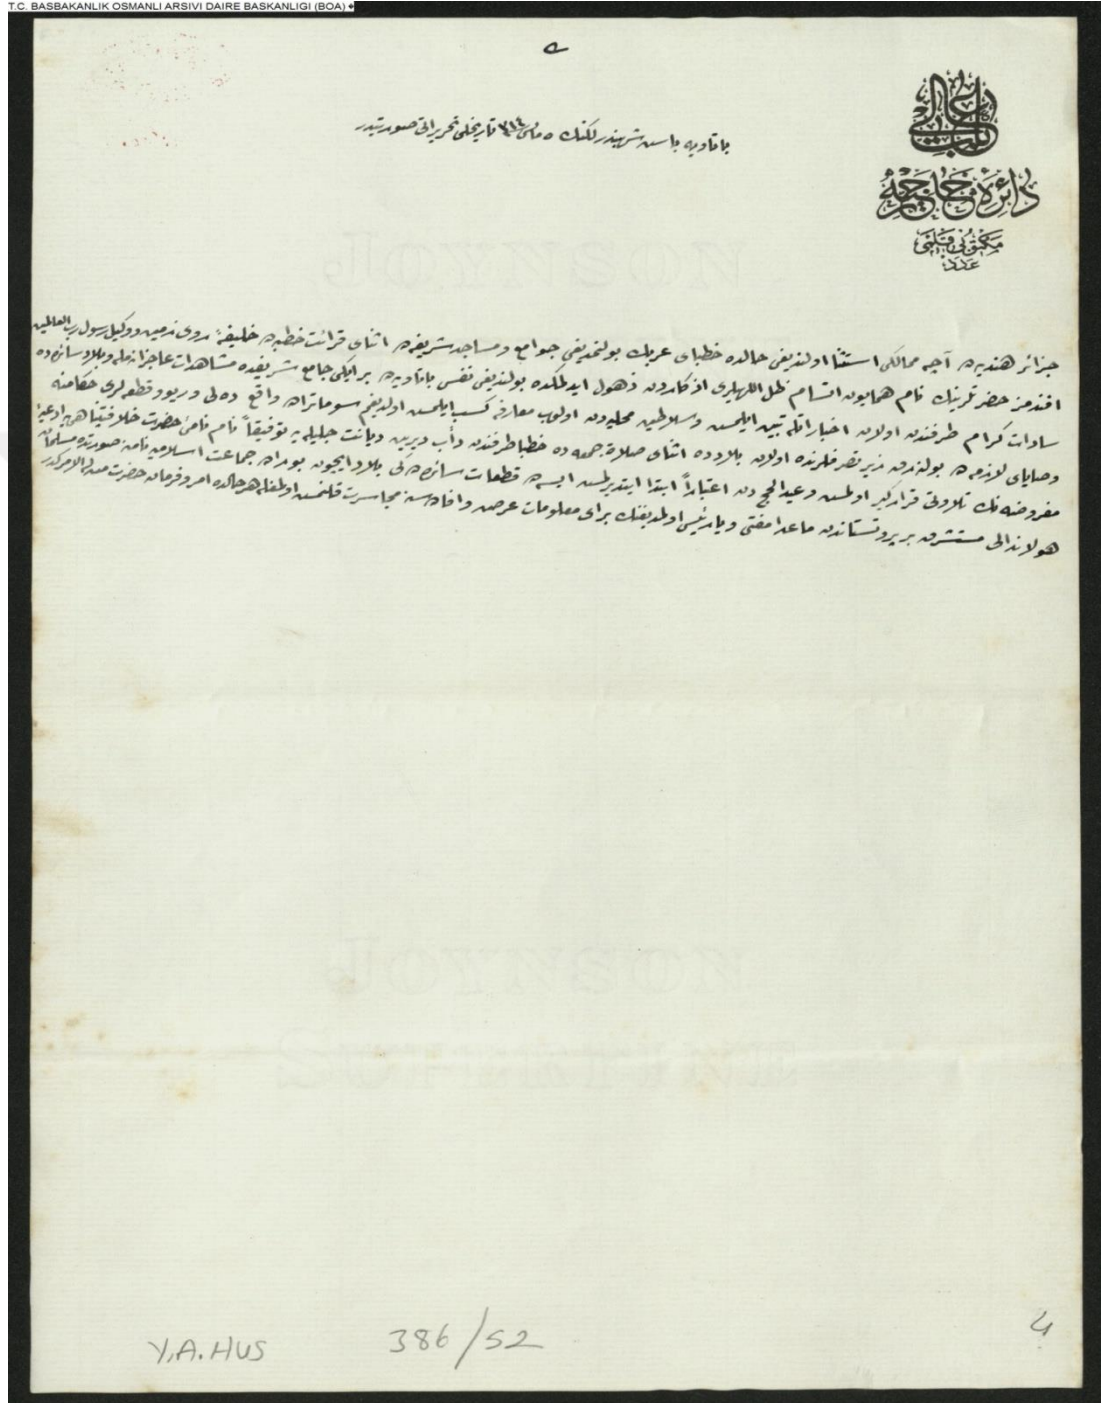 T.C. BASBAKANLIK OSMANLI ARSIVI DAIRE BASKANLIGI (BOA)
باب عالی
دائرهٔ خارجیه
مکتوبی قلمی
عدد
باتاویه باش شهبندرلکنك ٥ مایس ٣١٤ تاریخلی تحریراتی صورتیدر
جزائر هندیه ده آچه ممالکی استثنا اولندیغی حالده خطبای عربك بولندیغی جوامع و مساجد شریفه ده اثنای قرائت خطبه ده خلیفهٔ روی زمین و وکیل رسول رب العالمین
افندمز حضرتلرینك نام همایون ظل اللهیلری اذکاردن ذهول ایدلمکده بولندیغی نفس باتاویه ده بر ایکی جامع شریفده مشاهدات عاجزانه مله و بلاد سائره ده
سادات کرام طرفندن اولان اخباراتله تبین ایلمش و سلاطین محلیه دن اولوب معارفه کسب ایلمش اولدیغم سوماتراده واقع ده لی و ریوو قطعه لری حکامنه
وصایای لازمه ده بولنه رق زیر تصرفلرنده اولان بلادده اثنای صلاة جمعه ده خطبا طرفندن داب دیرین دیانت جلیله یه توفیقاً نام نامی حضرت خلافتپناهی یه ادعیهٔ
مفروضه نك تلاوتی قرارکیر اولمش و عید الحج دن اعتباراً ابتدا ایتدیرلمش ایسه ده قطعات سائره ده کی بلاد ایچون بوراده جماعت اسلامیه نامنه صورتده مسلمان
هولاندالی مستشرق بر پروتستاندن ماعدا مفتی ویا رئیس اولمدیغنك برای معلومات عرض و افاده سنه مجاسرت قلنمش اولمغله هر حالده امر و فرمان حضرت من له الامرکدر
JOYNSON
JOYNSON
SUPERFINE
Y.A.HUS
386/52
4